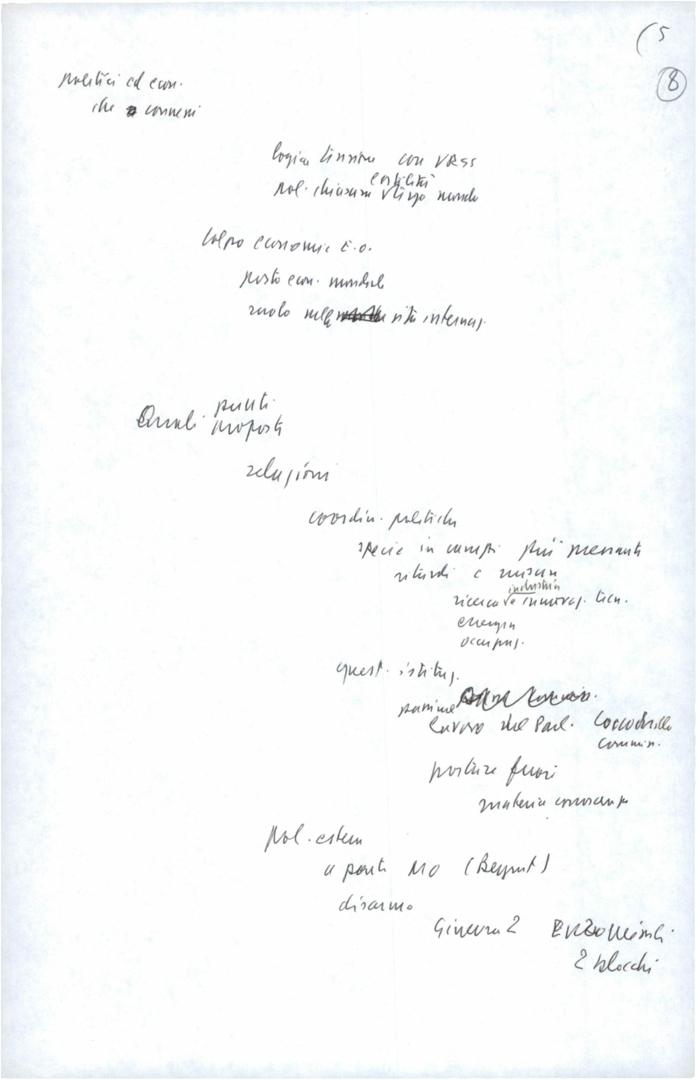 (5
8
politici ed econ.
che connessi
logica tensione con URSS
ostilità
pol. chiusura verso mondo
colpo economie E.O.
posto econ. mondiale
ruolo nella vita internaz.
Quali punti
proposti
relazioni
coordin. politiche
specie in campi più pressanti
ritardi e
industria
ricerca e innovaz. tecn.
energia
occupaz.
quest. istituz.
lavoro del Parl. Coccodrillo
commiss.
portare fuori
materia
pol. estera
a parte MO (Beyrut)
disarmo
Ginevra 2 Euromissili
2 blocchi